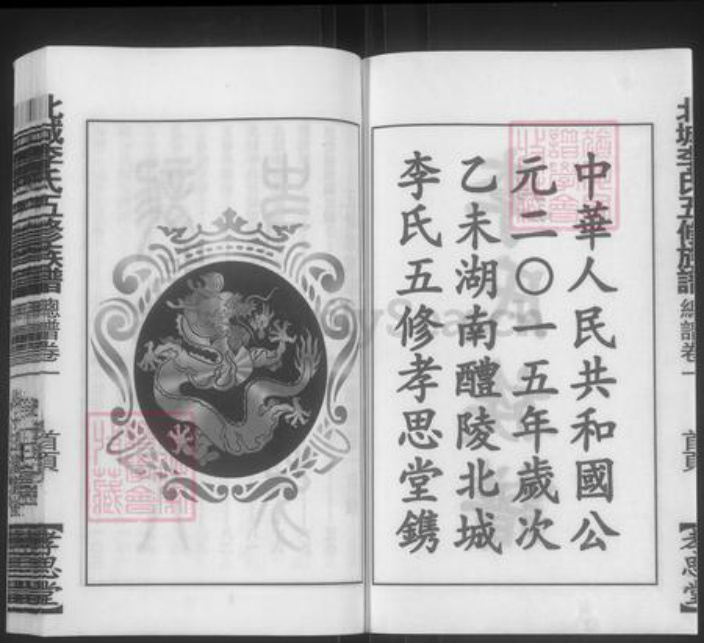 中華人民共和國公
元二〇一五年歲次
乙未湖南醴陵北城
李氏五修孝思堂鐫
北城李氏五修族譜
總譜卷一
首頁
【孝思堂】
北城李氏五修族譜
總譜卷一
首頁
【孝思堂】